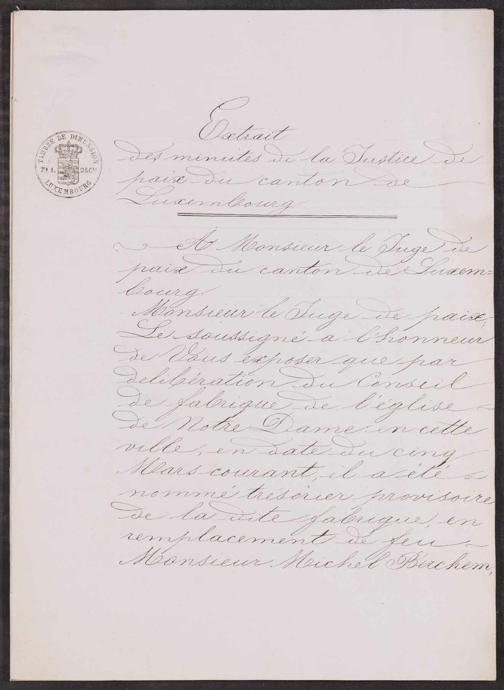 Extrait
des minutes de la Justice de
paix du canton de
Luxembourg
TIMBRE DE DIMENSION
LUXEMBOURG
A Monsieur le Juge de
paix du canton de Luxem-
bourg
Monsieur le Juge de paix,
Le soussigné a l'honneur
de Vous exposer que par
délibération du Conseil
de fabrique de l'église
de Notre Dame en cette
ville, en date du cinq
Mars courant, il a été
nommé trésorier provisoire
de la dite fabrique, en
remplacement de feu
Monsieur Michel Berchem,